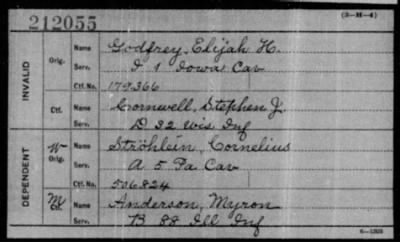 212055
(3-H-4)
INVALID
Orig. Name Godfrey, Elijah H.
Serv. I 1 Iowa Cav
Ctf. No. 179366
Ctf. Name Cornwell, Stephen J.
Serv. D 32 Wis Inf
DEPENDENT
W Orig. Name Ströhlein, Cornelius
Serv. A 5 Pa Cav
Ctf. No. 506824
M Ctf. Name Anderson, Myron
Serv. B 88 Ill Inf